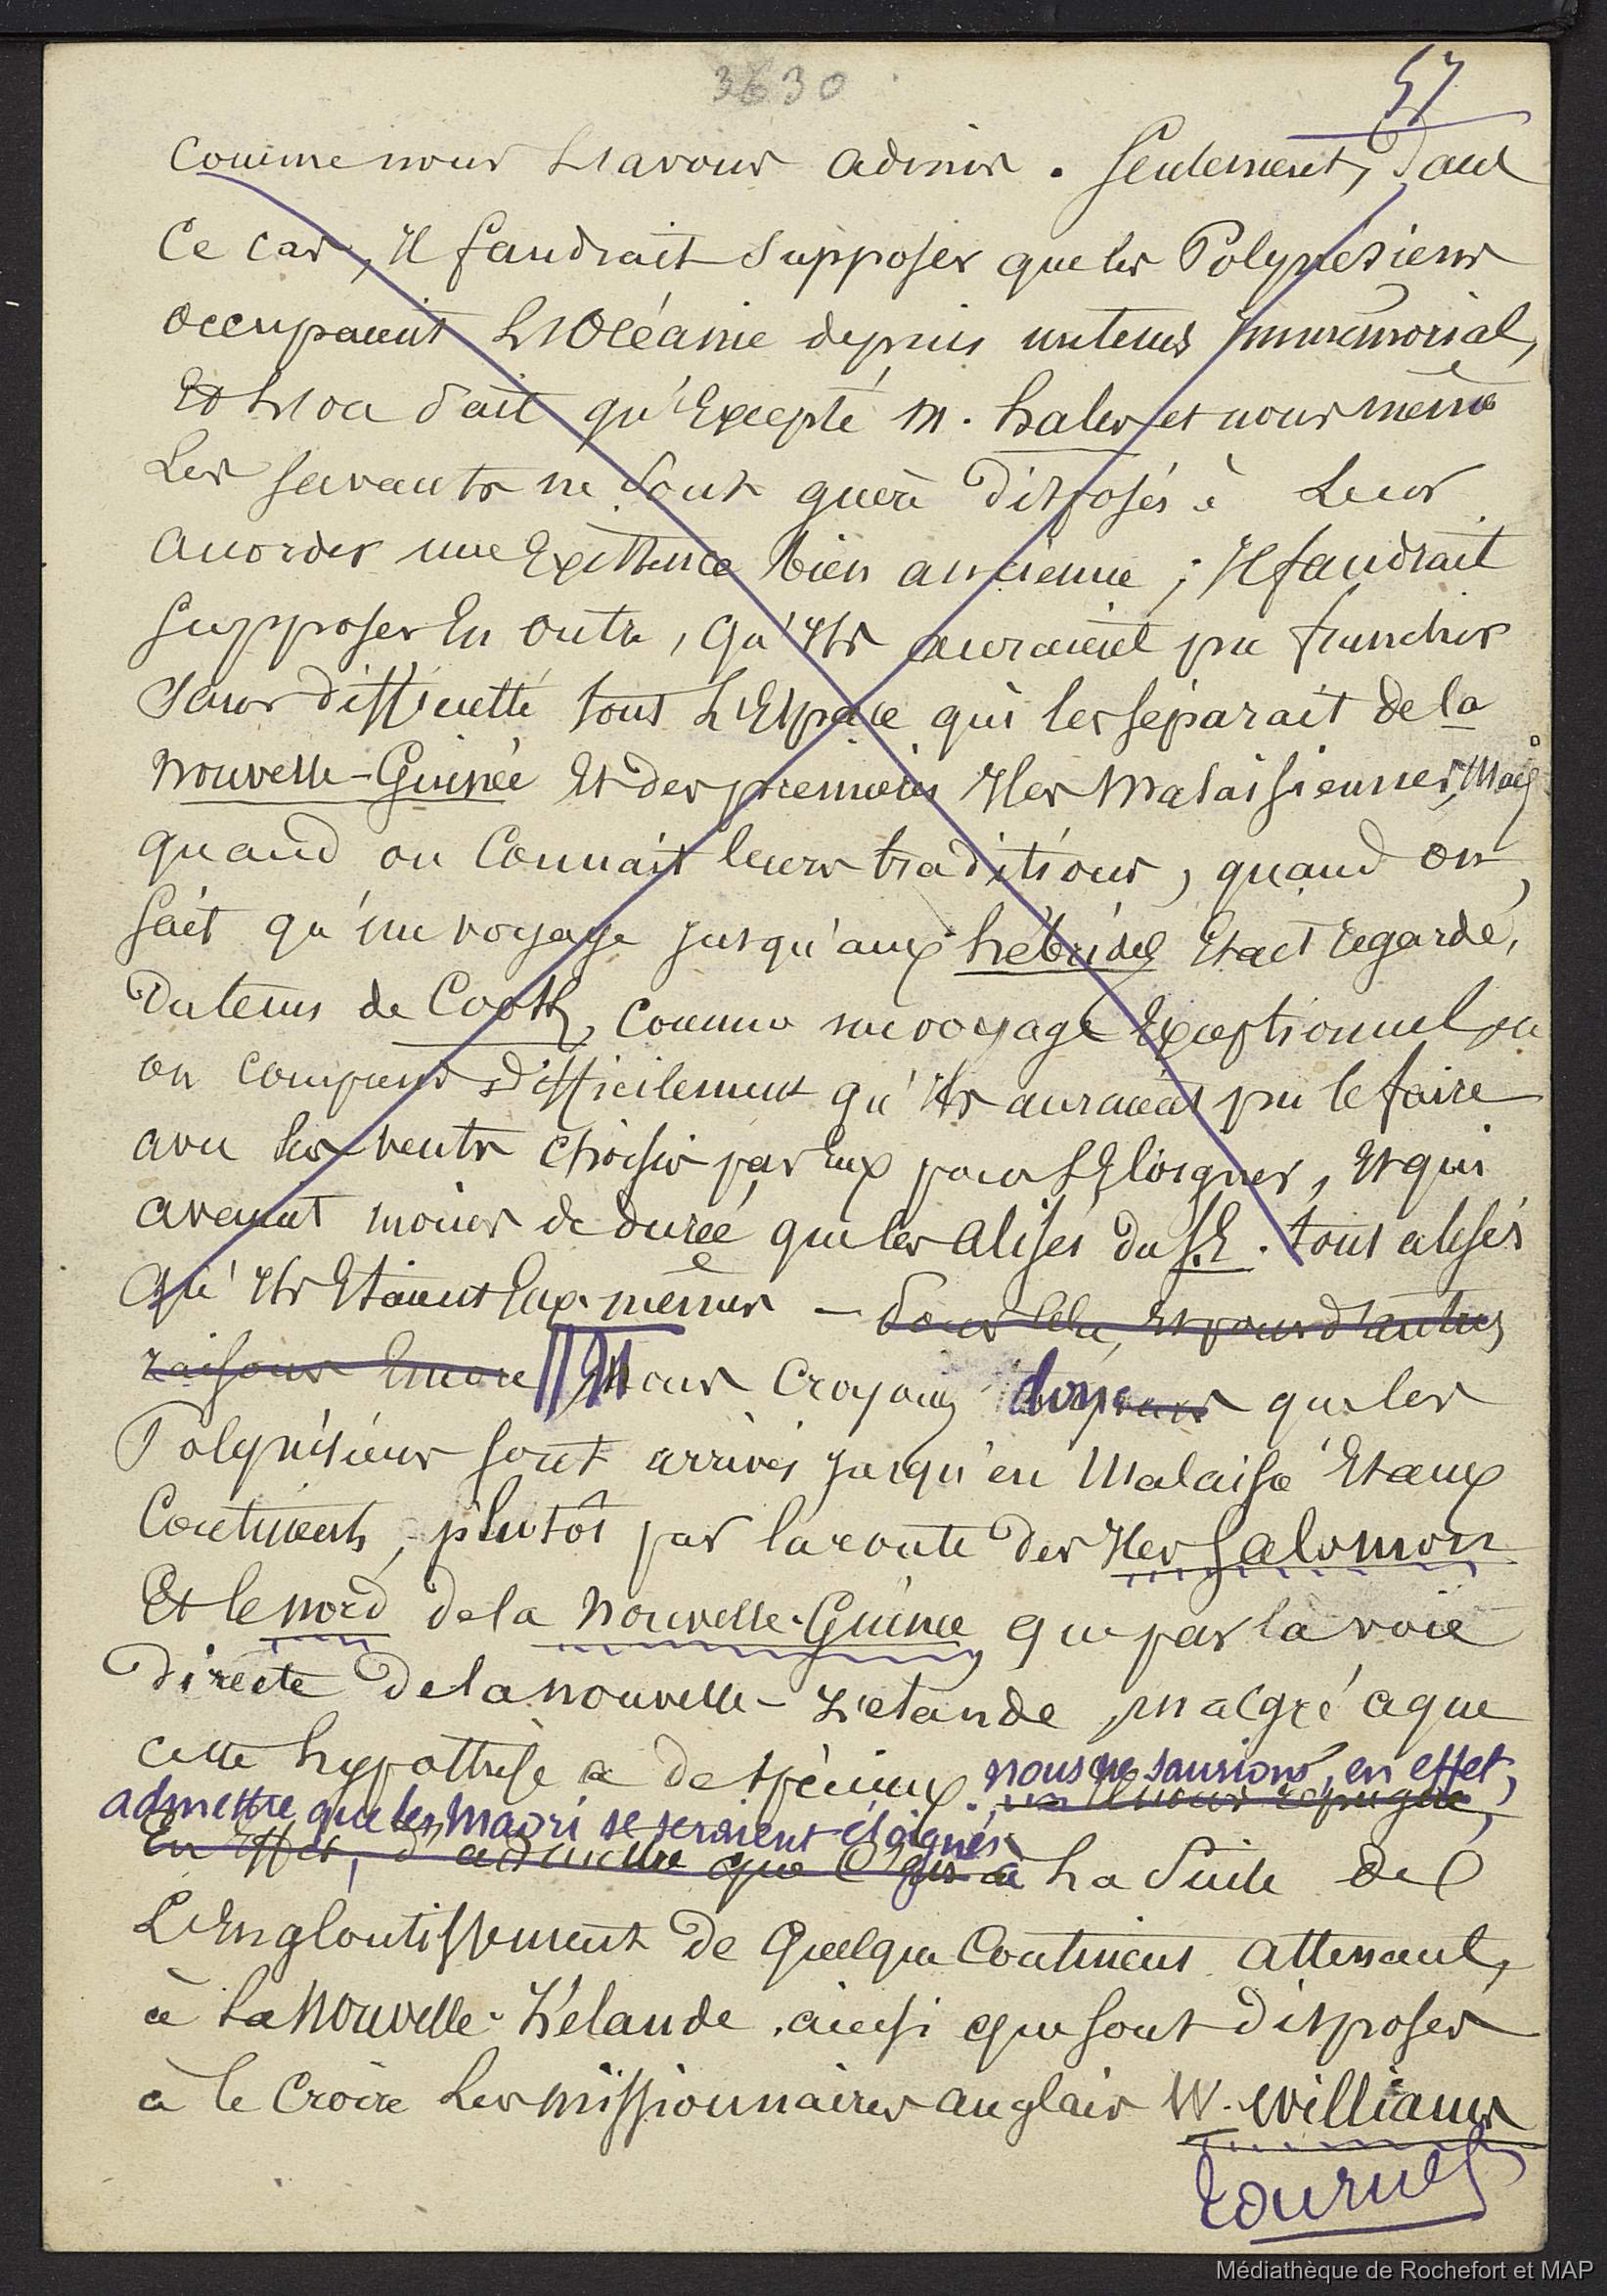 3630
57
comme nous L'avons admis. Seulement, dans
ce cas, Il faudrait supposer que les Polynésiens
occupaient L'Océanie depuis un tems immémorial,
Et L'on sait qu'Excepté M. hales et nous même
Les savants ne sont guère disposés à Leur
accorder une Existence bien ancienne ; Il faudrait
supposer En outre, qu'Ils auraient pu franchir
sans difficulté tout L'Espace qui les séparait de la
Nouvelle-Guinée Et des premières Iles Malaisiennes, Mais
quand on Connait leurs traditions, quand on
sait qu'un voyage jusqu'aux hébrides Etait regardé,
du tems de Cook, comme un voyage Exceptionnel,
on comprend difficilement qu'Ils auraient pu le faire
avec les vents choisis par Eux pour s'Eloigner, Et qui
avaient moins de durée que les alisés du S.E. tout alisés
qu'Ils Etaient Eux-mêmes — Pour cela, Et pour d'autres
raisons Encore Nous croyons donc que les
Polynésiens sont arrivés jusqu'en Malaisie Et aux
Continents, plutôt par la route des Iles Salomon
Et le nord de la Nouvelle-Guinée que par la voie
directe de la Nouvelle-Zélande, malgré ce que
cette hypothèse a de spécieux. nous ne saurions, en effet,
Il nous répugne,
admettre que les Maori se seraient éloignés
En Effet, d'admettre que c'est à La Suite de
L'Engloutissement de Quelque Continent attenant,
à La Nouvelle-Zélande, ainsi que sont disposés
à le croire Les missionnaires anglais W. Williams
tournez
Médiathèque de Rochefort et MAP